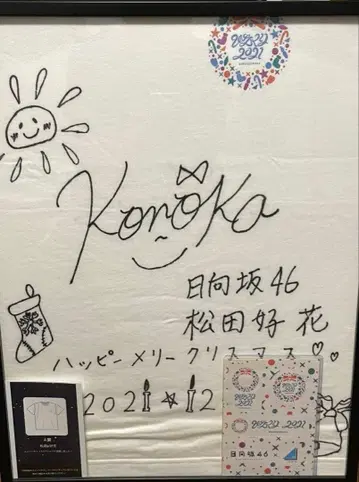 ひなクリ
2021
Konoka
日向坂46
松田好花
ハッピーメリークリスマス♡♡
2021☆12
ひなクリ 2021
日向坂46